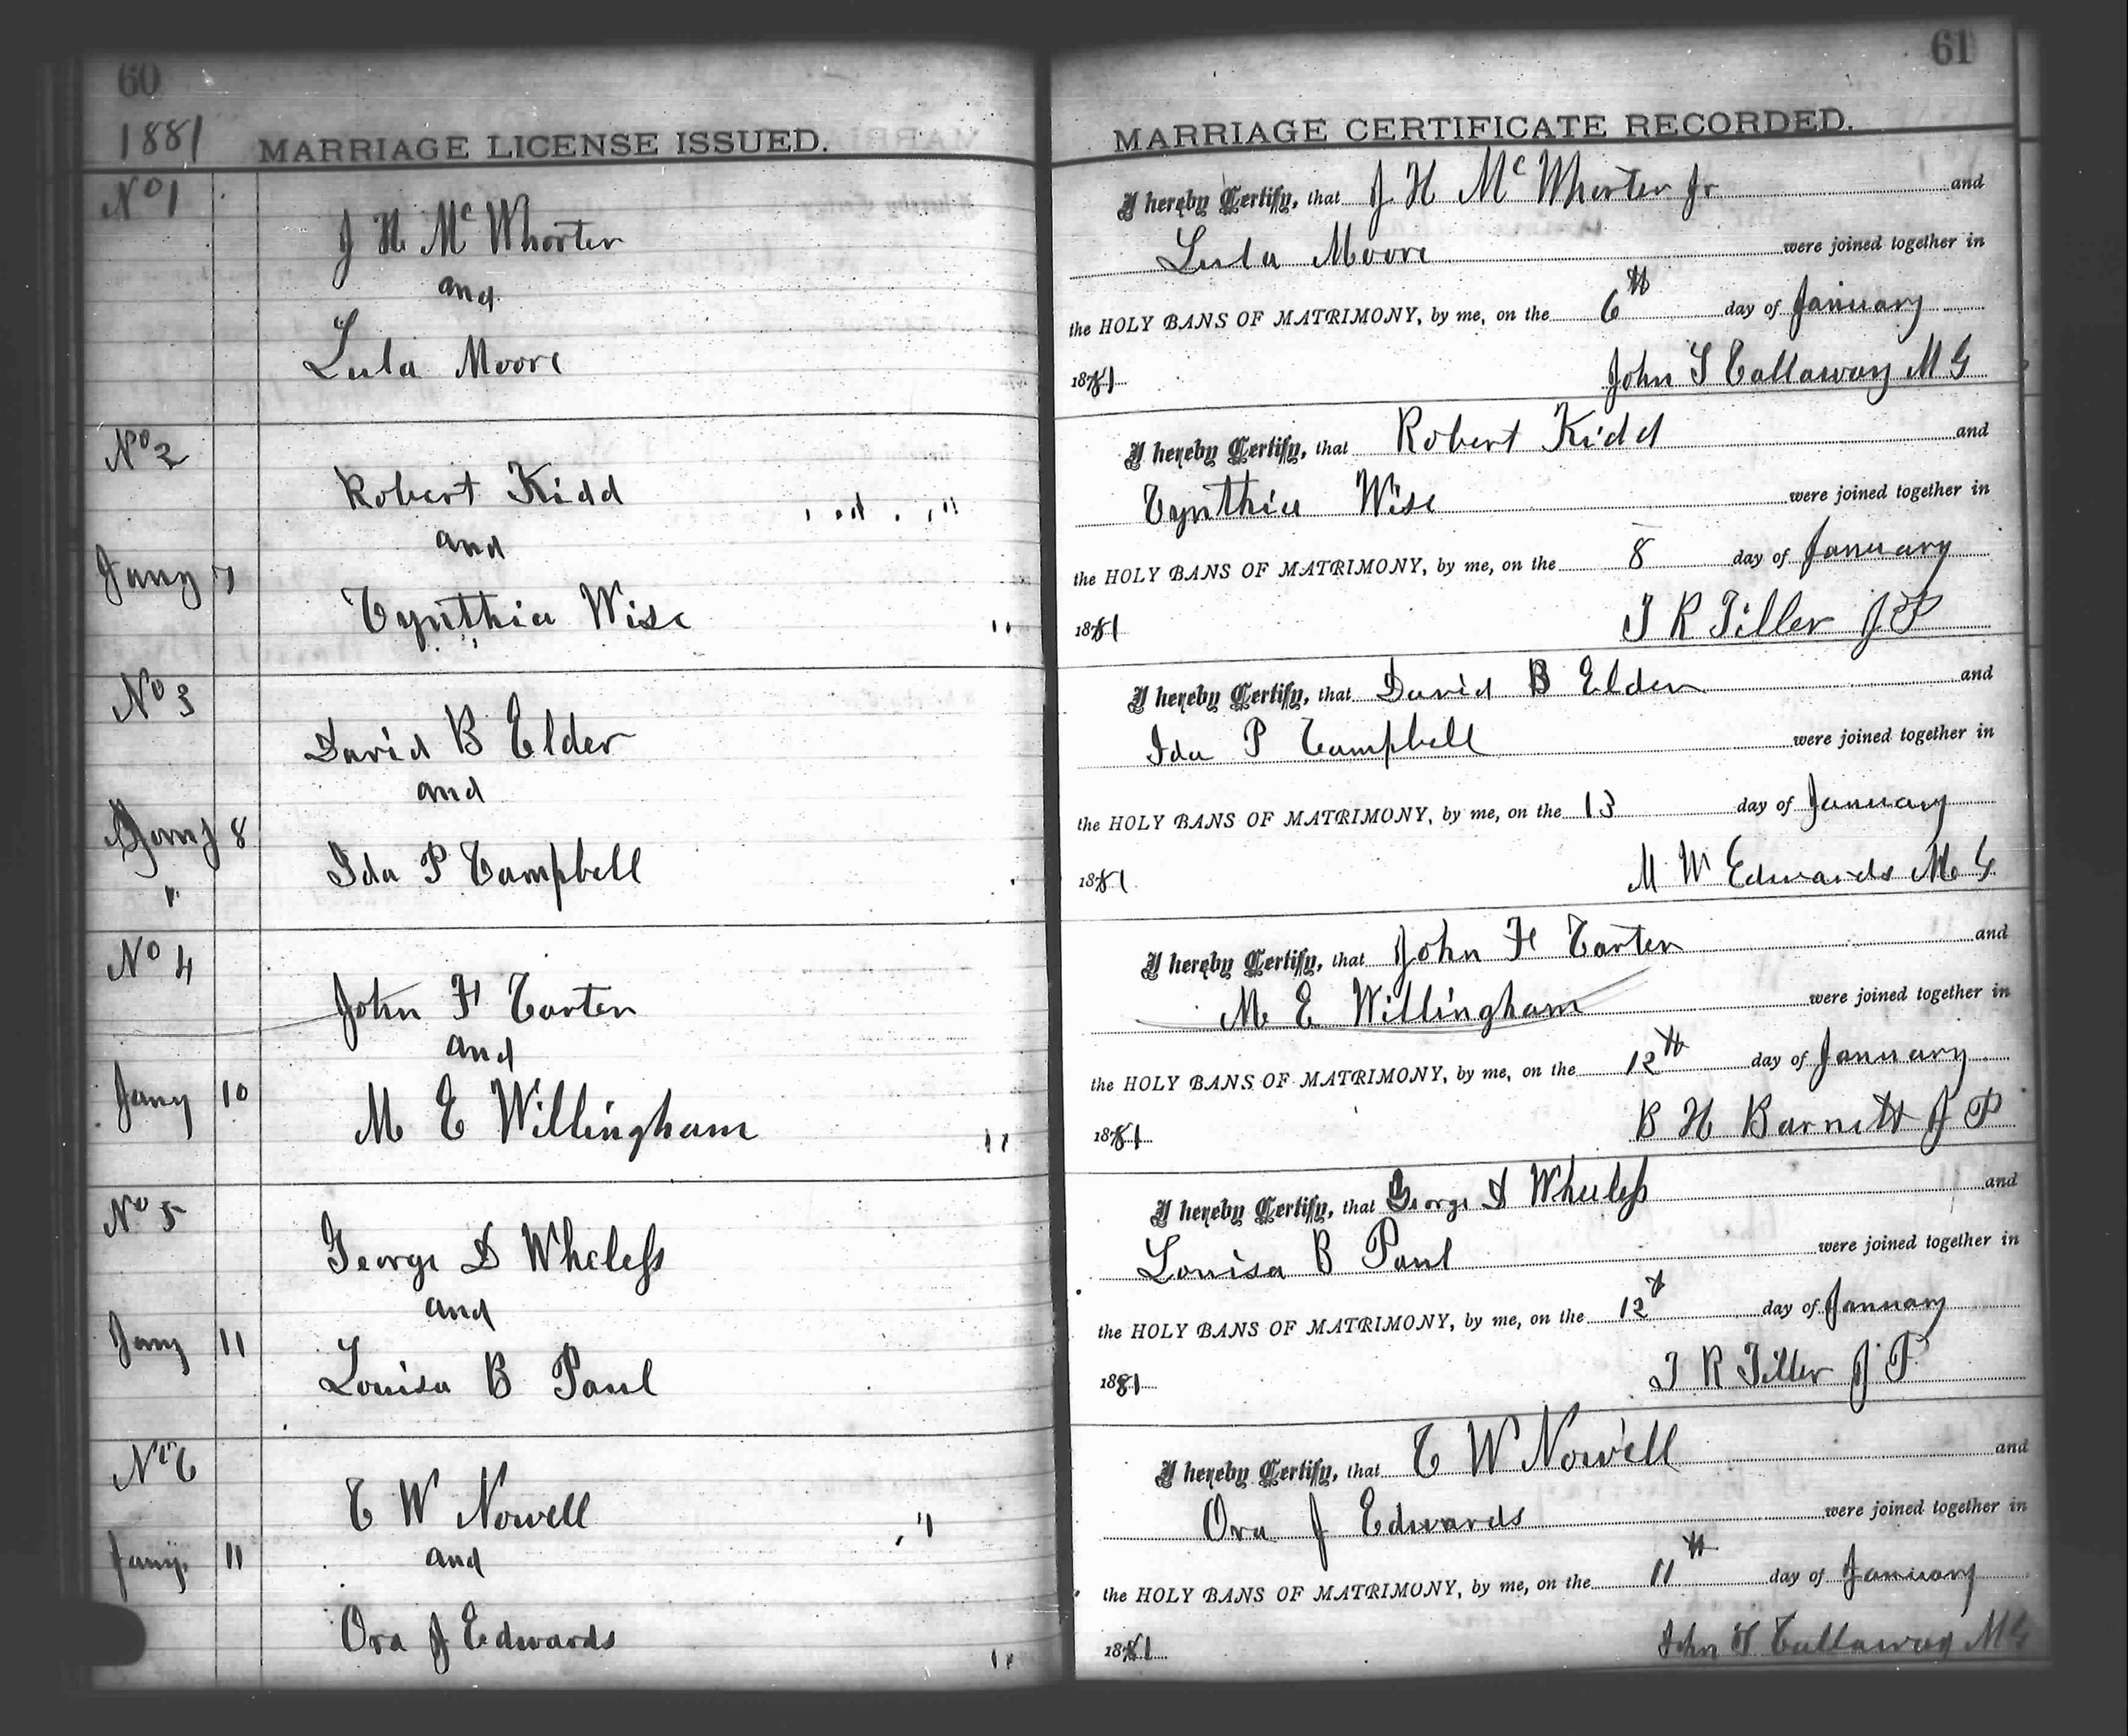 60
1881
MARRIAGE LICENSE ISSUED.
No 1
J H McWhorter
and
Lula Moore
No 2
Robert Kidd
and
Jany 7
Cynthia Wise
No 3
David B Elder
and
Jany 8
"
Ida P Campbell
No 4
John F Carter
and
Jany 10
M E Willingham
No 5
George D Wheless
and
Jany 11
Louisa B Paul
No 6
C W Nowell
Jany. 11
and
Ora J Edwards
61
MARRIAGE CERTIFICATE RECORDED.
I hereby Certify, that J H McWhorter Jr and
Lula Moore were joined together in
the HOLY BANS OF MATRIMONY, by me, on the 6th day of January
1881
John S Callaway M G
I hereby Certify, that Robert Kidd and
Cynthia Wise were joined together in
the HOLY BANS OF MATRIMONY, by me, on the 8 day of January
1881
T R Tiller J P
I hereby Certify, that David B Elder and
Ida P Campbell were joined together in
the HOLY BANS OF MATRIMONY, by me, on the 13 day of January
1881
M W Edwards M G
I hereby Certify, that John F Carter and
M E Willingham were joined together in
the HOLY BANS OF MATRIMONY, by me, on the 12th day of January
1881
B H Barnett J P
I hereby Certify, that George D Wheeless and
Louisa B Paul were joined together in
the HOLY BANS OF MATRIMONY, by me, on the 12th day of January
1881
T R Tiller J P
I hereby Certify, that C W Nowell and
Ora J Edwards were joined together in
the HOLY BANS OF MATRIMONY, by me, on the 11th day of January
1881
John Callaway M G